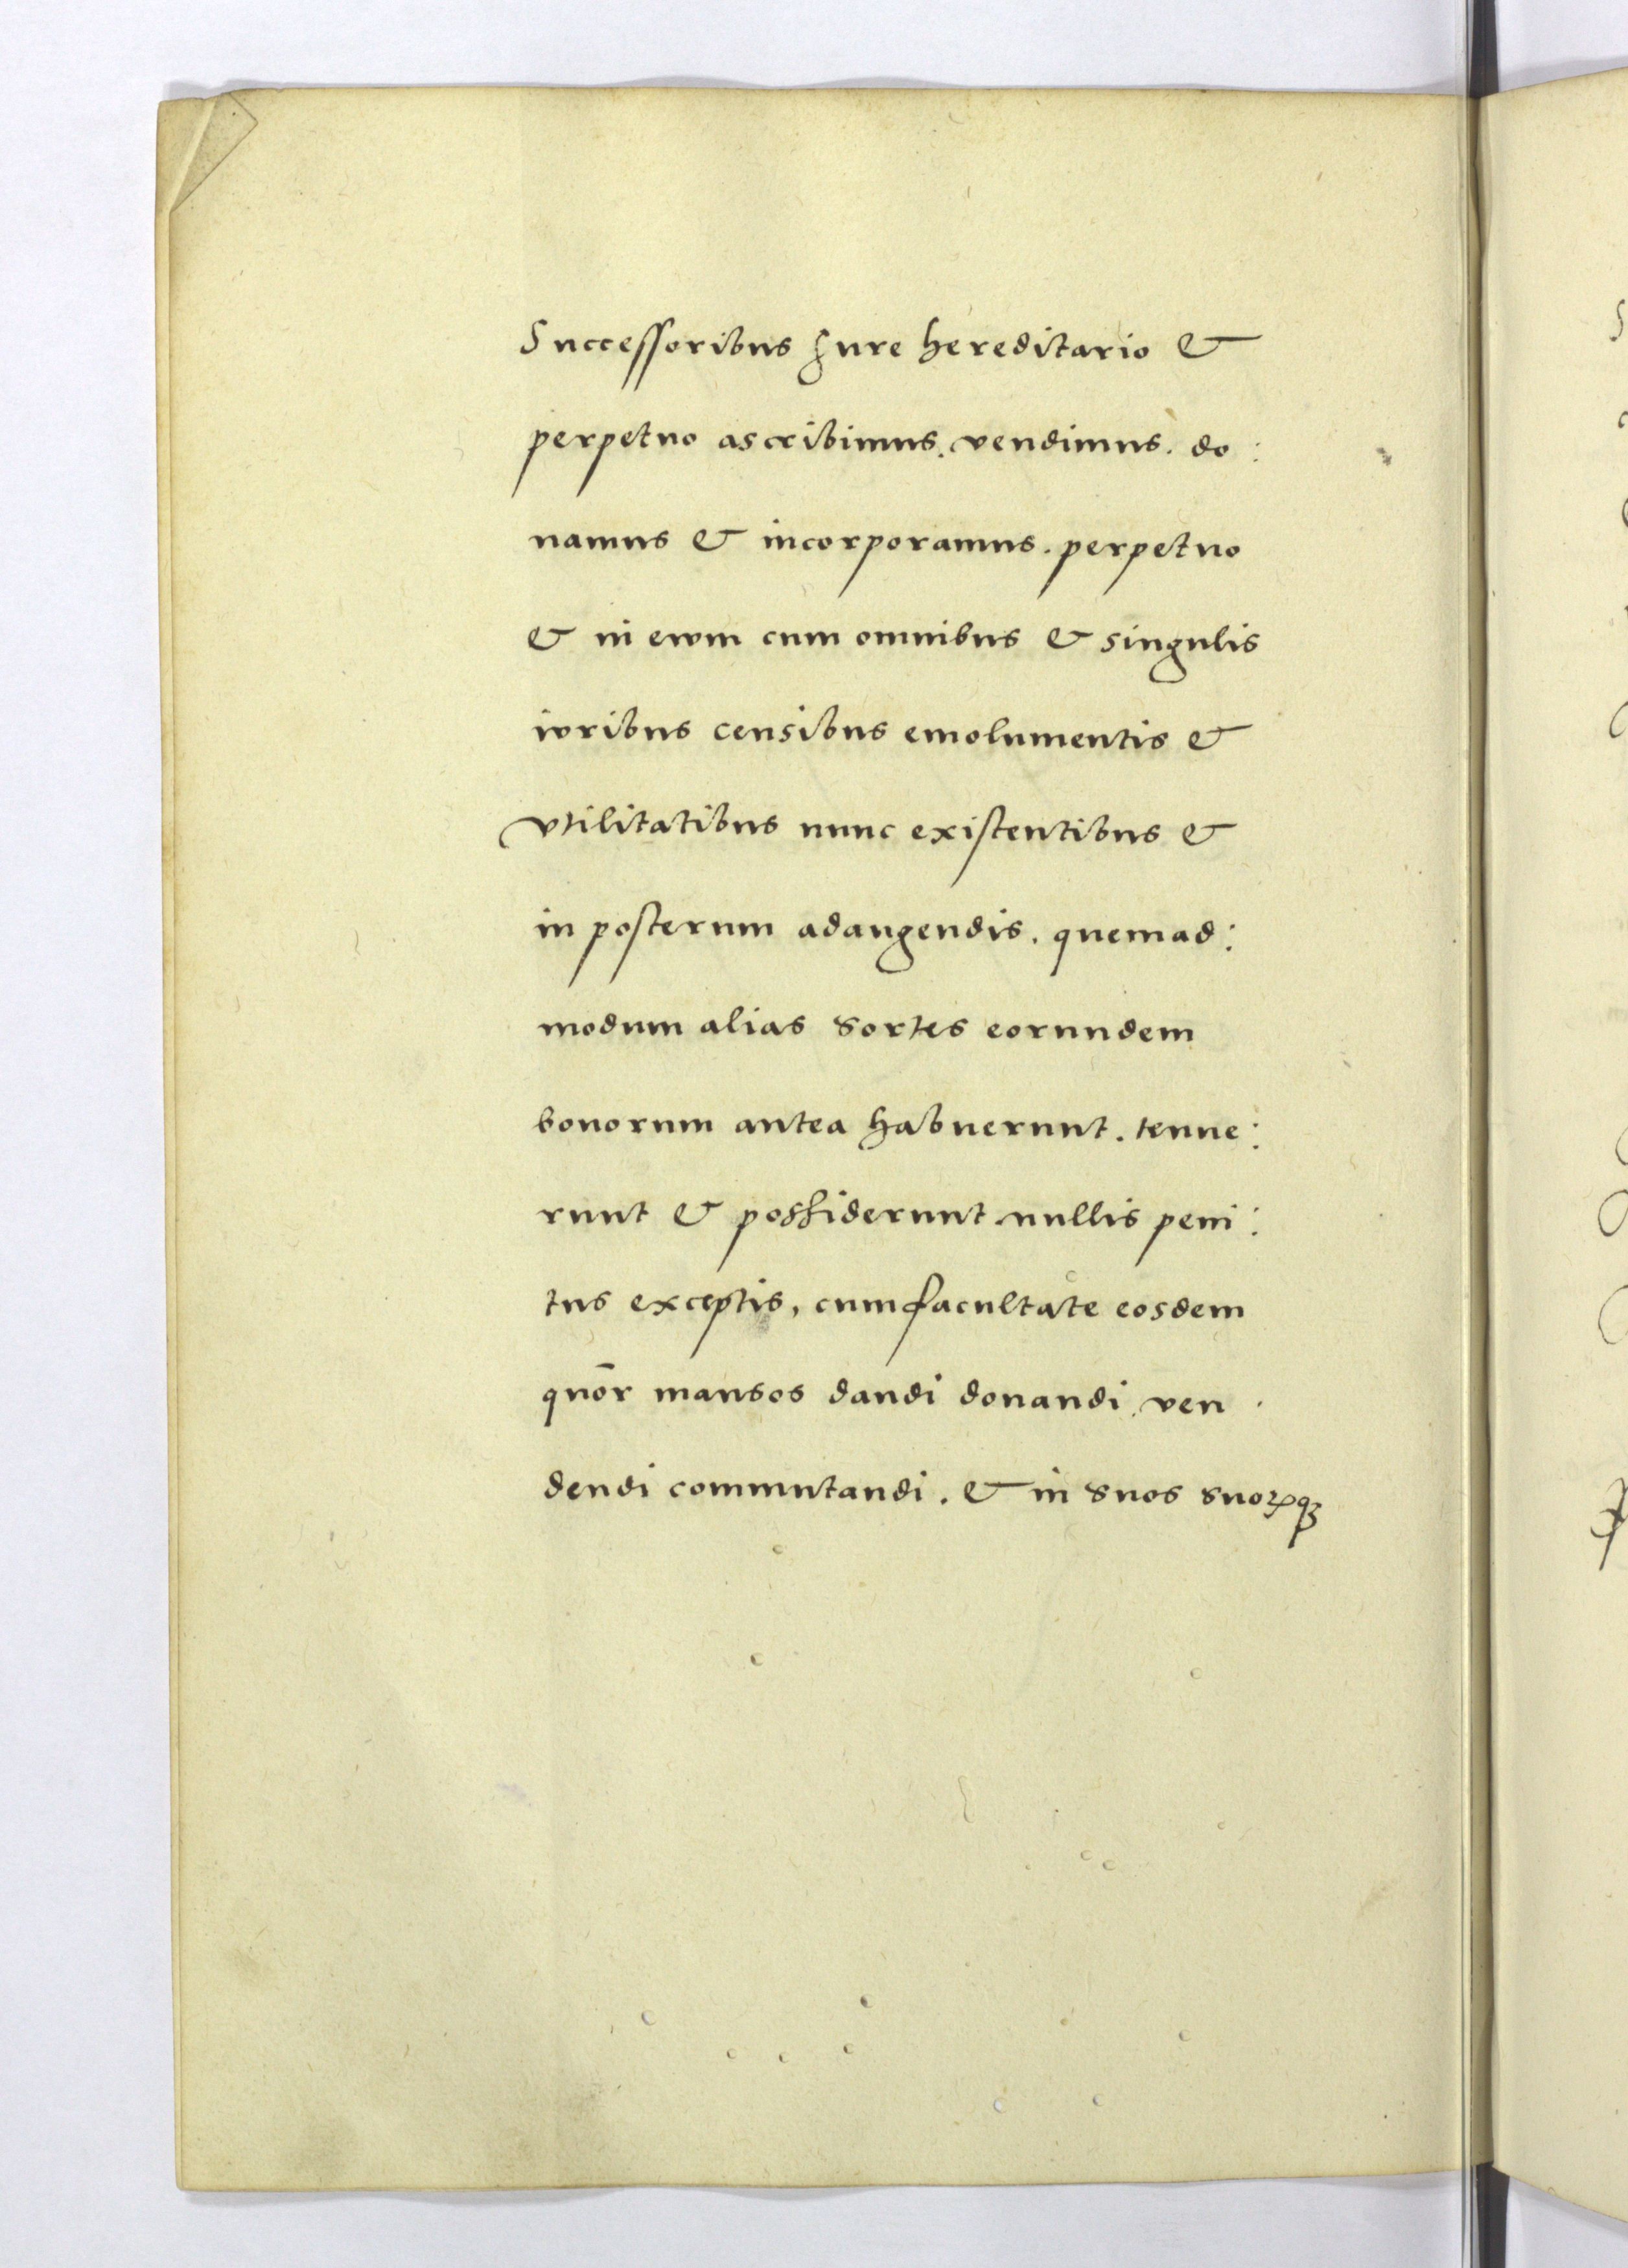 Successoribus Jure hereditario &
perpetuo ascribimus. vendimus. do:
namus & incorporamus. perpetuo
& in evum cum omnibus & singulis
iuribus censibus emolumentis &
vtilitatibus nunc existentibus &
in posterum adaugendis. quemad:
modum alias sortes eorundem
bonorum antea habuerunt. tenue:
runt & possiderunt nullis peni:
tus exceptis, cum facultate eosdem
quōr mansos dandi donandi ven
dendi commutandi. & in suos suoꝝqꝫ